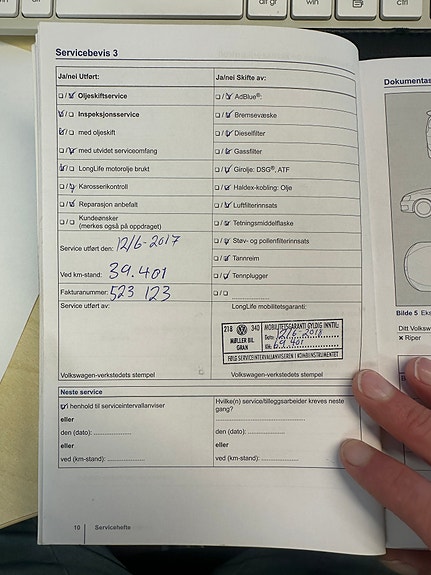 alt gr
win
ctrl
Servicebevis 3
Ja/nei Utført:
Ja/nei Skifte av:
Oljeskiftservice
AdBlue®:
Inspeksjonsservice
Bremsevæske
med oljeskift
Dieselfilter
med utvidet serviceomfang
Gassfilter
LongLife motorolje brukt
Girolje: DSG®, ATF
Karosserikontroll
Haldex-kobling: Olje
Reparasjon anbefalt
Luftfilterinnsats
Kundeønsker
(merkes også på oppdraget)
Tetningsmiddelflaske
Service utført den: 12/6-2017
Støv- og pollenfilterinnsats
Tannreim
Ved km-stand: 39.401
Tennplugger
Fakturanummer: 523 123
Service utført av:
LongLife mobilitetsgaranti:
218 340 MOBILITETSGARANTI GYLDIG INNTIL:
MØLLER BIL
GRAN
Dato: 12/6-2018
KM: 69.401
FØLG SERVICEINTERVALLANVISEREN I KOMBIINSTRUMENTET
Volkswagen-verkstedets stempel
Volkswagen-verkstedets stempel
Neste service
I henhold til serviceintervallanviser
Hvilke(n) service/tilleggsarbeider kreves neste gang?
eller
den (dato):
den (dato):
eller
eller
ved (km-stand):
ved (km-stand):
10 Servicehefte
Dokumentas
Bilde 5 Eks
Ditt Volksw
× Riper